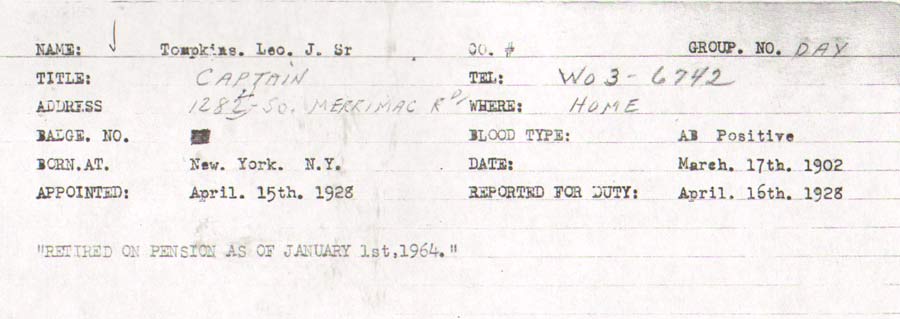 NAME: Tompkins. Leo. J. Sr CO. # GROUP. NO. DAY
TITLE: CAPTAIN TEL: WO 3-6742
ADDRESS So. MERRIMAC Rd WHERE: HOME
BADGE. NO. BLOOD TYPE: AB Positive
BORN.AT. New. York. N.Y. DATE: March. 17th. 1902
APPOINTED: April. 15th. 1928 REPORTED FOR DUTY: April. 16th. 1928
"RETIRED ON PENSION AS OF JANUARY 1st,1964."